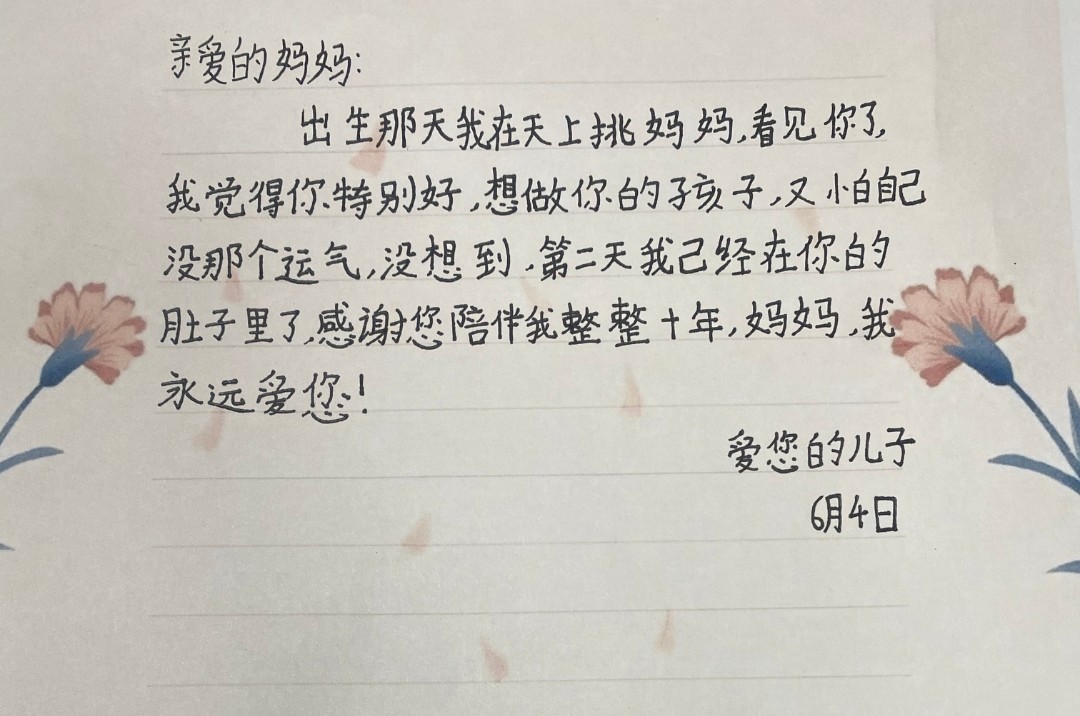 亲爱的妈妈:
出生那天我在天上挑妈妈,看见你了,
我觉得你特别好,想做你的孩子,又怕自己
没那个运气,没想到,第二天我己经在你的
肚子里了,感谢您陪伴我整整十年,妈妈,我
永远爱您!
爱您的儿子
6月4日